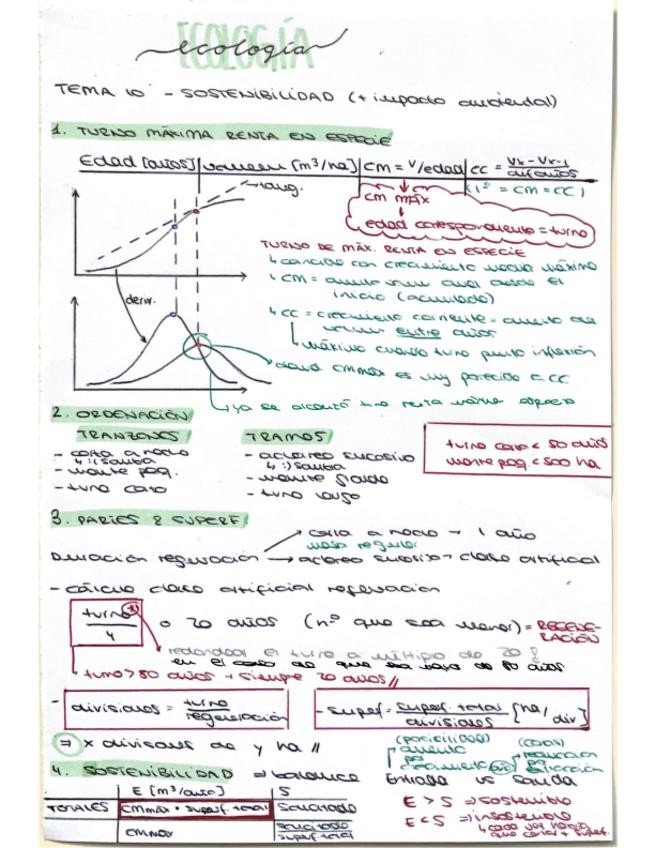 ECOLOGÍA
ecología
TEMA 10 - SOSTENIBILIDAD (+ impacto ambiental)
1. TURNO MÁXIMA RENTA EN ESPECIE
Edad [años] | volumen [m³/ha] | CM = V/edad | CC = Vx - Vx-1 / dif años
tang.
(1º = CM = CC)
CM MÁX
edad correspondiente = turno
TURNO DE MÁX. RENTA EN ESPECIE
coincide con crecimiento medio máximo
CM = aumento volumen anual desde el
inicio (acumulado)
deriv.
CC = crecimiento corriente = aumento de
volumen entre años
máximo cuando turno punto inflexión
CMmáx es muy parecido a CC
ya se alcanzó renta especie
2. ORDENACIÓN
TRANZONES
TRAMOS
- corta a hecho
- aclareo sucesivo
- monte peq.
- monte grande
- turno corto
- turno largo
turno corto < 50 años
monte peq. < 500 ha
3. PARTES & SUPERF
Duración regeneración
corta a hecho → 1 año
masa regular
aclareo sucesivo → clase artificial
- cálculo clase artificial regeneración
turno / 4 o 20 años (nº que sea menor) = REGENERACIÓN
redondear el turno a múltiplo de 20
en el caso de que sea menos de 80 años
turno > 80 años → siempre 20 años //
- divisiones = turno / regeneración
- superf = superf. total / divisiones [ha/div]
⇒ x divisiones de y ha //
(posibilidad)
aumento
crecimiento
4. SOSTENIBILIDAD ⇒ balance
Entrada vs Salida
E [m³/año] | S
TOTALES | CMmáx · superf. total | Sacartado
CMmáx
superf. total
E > S ⇒ sostenible
E < S ⇒ insostenible